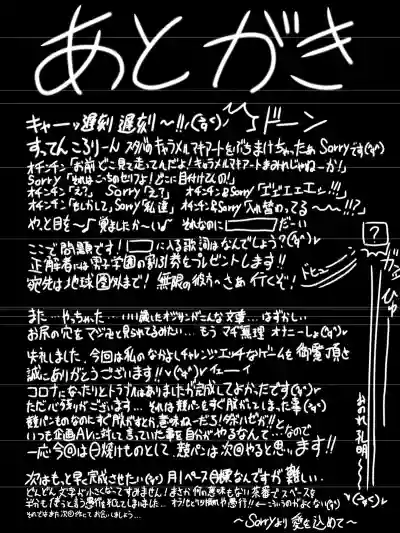 あとがき
キャーッ遅刻遅刻〜!!ヾ(ｰ̀ωｰ́) ドーン
すってんころりーん スタバのキャラメルマキアートをぶちまけちゃったぁ Sorryです
オチンチン「お前どこ見て走ってんだよ!キャラメルマキアートまみれじゃねーか!」
Sorry「それはこっちのセリフよ!どこに目付けてんの!」
オチンチン「え?」 Sorry「えて」 オチンチン&Sorry「エェエエエン!!!」
オチンチン「もしかして」Sorry「私達」オチンチン&Sorry「入れ替わってる〜〜〜!!?」
やっと目を〜♪覚ましたか〜い♪ それなのに□だーい
ここで問題です!□に入る歌詞はなんでしょう?
正解者には男子学園の割引券をプレゼントします!!
宛先は地球圏外まで!無限の彼方へさぁ行くぞ! ドヒュー
?
ガッ
ひゅー
おのれ孔明〜
また…やっちゃった…いい歳したオジサンがこんな文章…はずかしい
お尻の穴をマジマジと見られてるみたい…もうマヂ無理 オナニーしよ
失礼しました、今回は私のなかよしチャレンジ・エッチなゲームを御覧頂き
誠にありがとうございます!! イェーイ
コロナになったりとトラブルはありましたが完成してよかったです
ただ心残りがございます…それは競パンをすぐ脱がしてしまった事
競パンものなのにすぐ脱がすとか意味ねーだろ!
いつも企画AVに対して言っていた事を自分がやるなんて…なので
一応今回は日焼けものとして、競パンは次回やると思います!!
次はもっと早く完成させたい 月1ペース目標なんですが難しい…
どんどん文字が小さくなってすみません!まさか何の意味もない茶番でスペースを
半分も使うと言う愚行を犯してしまいました…
それではまた次回作にてお会いしましょう…
〜Sorryより愛を込めて〜